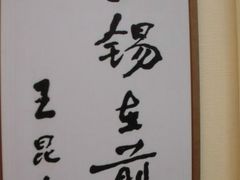 锡在前
王昆